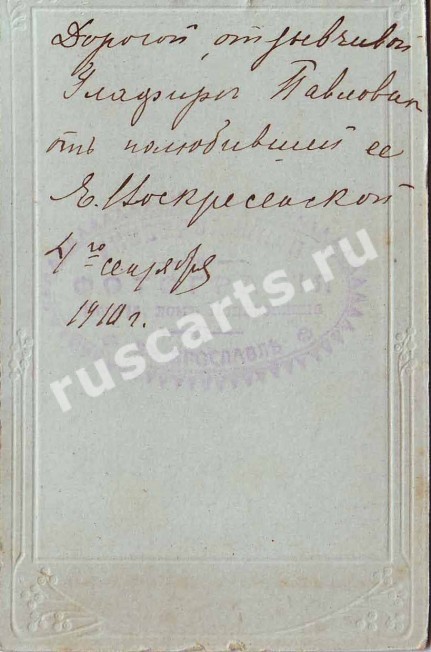 Дорогой, отзывчивой
Глафиры Павловн
отъ полюбившей ее
Е. Воскресенской
4го сентября
1910 г.
ЯРОСЛАВЛѢ
ruscarts.ru